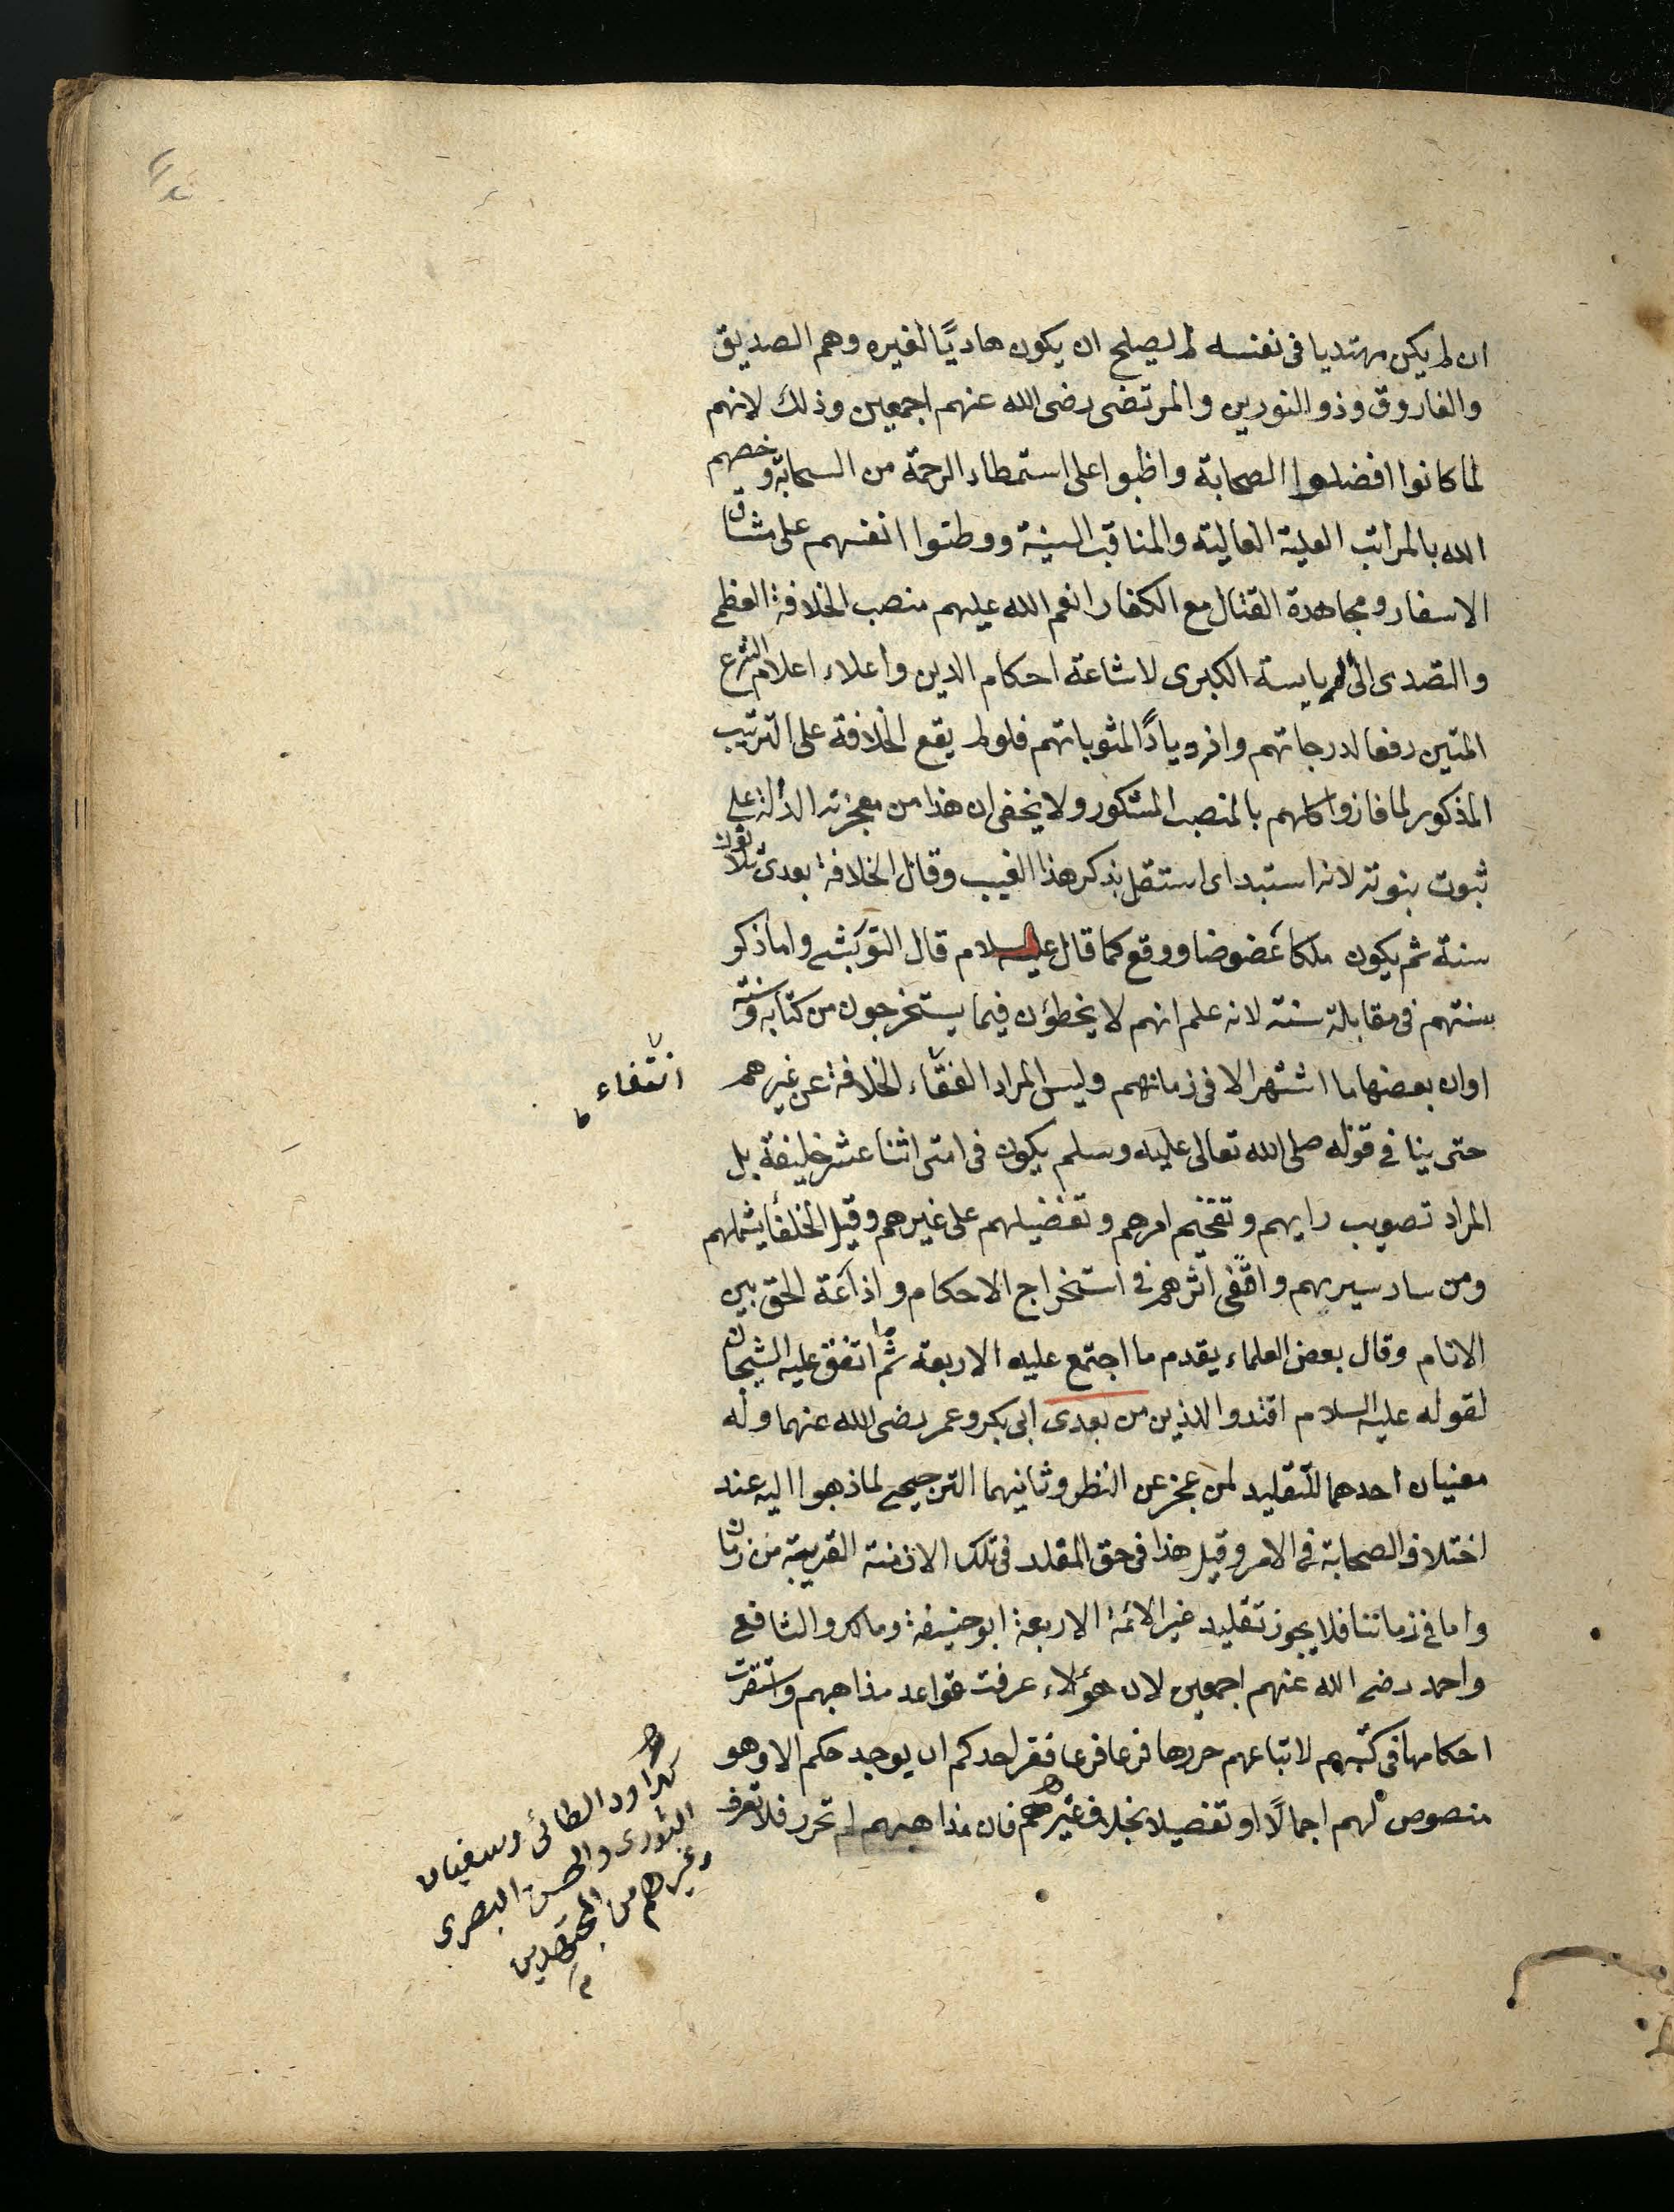 ان لم يكن مهتديا فى نفسه لم يصلح ان يكون هاديًا لغيره وهم الصديق
والفاروق وذو النورين والمرتضى رضى الله عنهم اجمعين وذلك لانهم
لما كانوا افضلوا الصحابة واظبوا على استمطار الرحمة من السحابة وخصهم
الله بالمراتب العلية العالية والمناقب السنية ووطنوا انفسهم على مشاق
الاسفار ومجاهدة القتال مع الكفار انعم الله عليهم منصب الخلافة العظمى
والتصدى الى الرياسة الكبرى لاشاعة احكام الدين واعلاء اعلام الشرع
المتين رفعا لدرجاتهم وازديادًا لمثوباتهم فلو لم يقع الخلافة على الترتيب
المذكور لما فازوا كلهم بالمنصب المشكور ولا يخفى ان هذا من معجزته الدالة على
ثبوت بنوته لانه استبد اى استقل بذكر هذا الغيب وقال الخلافة بعدى ثلاثون
سنة ثم يكون ملكا عضوضا ووقع كما قال عليه السلام قال التوربشتى واما ذكر
سنتهم فى مقابلة سنته لانه علم انهم لا يخطؤن فيما يستخرجون من كتابه وسنته
اوان بعضها ما اشتهر الا فى زمانهم وليس المراد الفقاء الخلافة عن غيرهم
انتفاء
حتى ينافى قوله صلى الله تعالى عليه وسلم يكون فى امتى اثنا عشر خليفة بل
المراد تصويب رايهم وتفخيم امرهم وتفضيلهم على غيرهم وقيل الخلفأ يشملهم
ومن سار سيرهم واقفى اثرهم فى استخراج الاحكام واذاعة الحق بين
الانام وقال بعض العلماء يقدم ما اجتمع عليه الاربعة ثم ما اتفق عليه الشيخان
لقوله عليه السلام اقتدوا للذين من بعدى ابى بكر وعمر رضى الله عنهما وله
معنيان احدهما للتقليد لمن عجز عن النظر وثانيهما الترجيح لما ذهبوا اليه عند
اختلاف الصحابة فى الامر وقيل هذا فى حق المقلد فى تلك الازمنة القريبة من زمان
واما فى زماننا فلا يجوز تقليد غير الائمة الاربعة ابو حنيفة ومالك والشافعى
واحمد رضى الله عنهم اجمعين لان هؤلاء عرفت قواعد مذاهبهم واستقرت
احكامها فى كتبهم لاتباعهم حررها فرعا فرعا فقر احدكم ان يوجد حكم الا وهو
منصوص لهم اجمالًا او تفصيلا بخلاف غيرهم فان مذاهبهم لم تحرر فلا تعرف
كداود الطائى وسفيان
الثورى والحسن البصرى
وغيرهم من المجتهدين